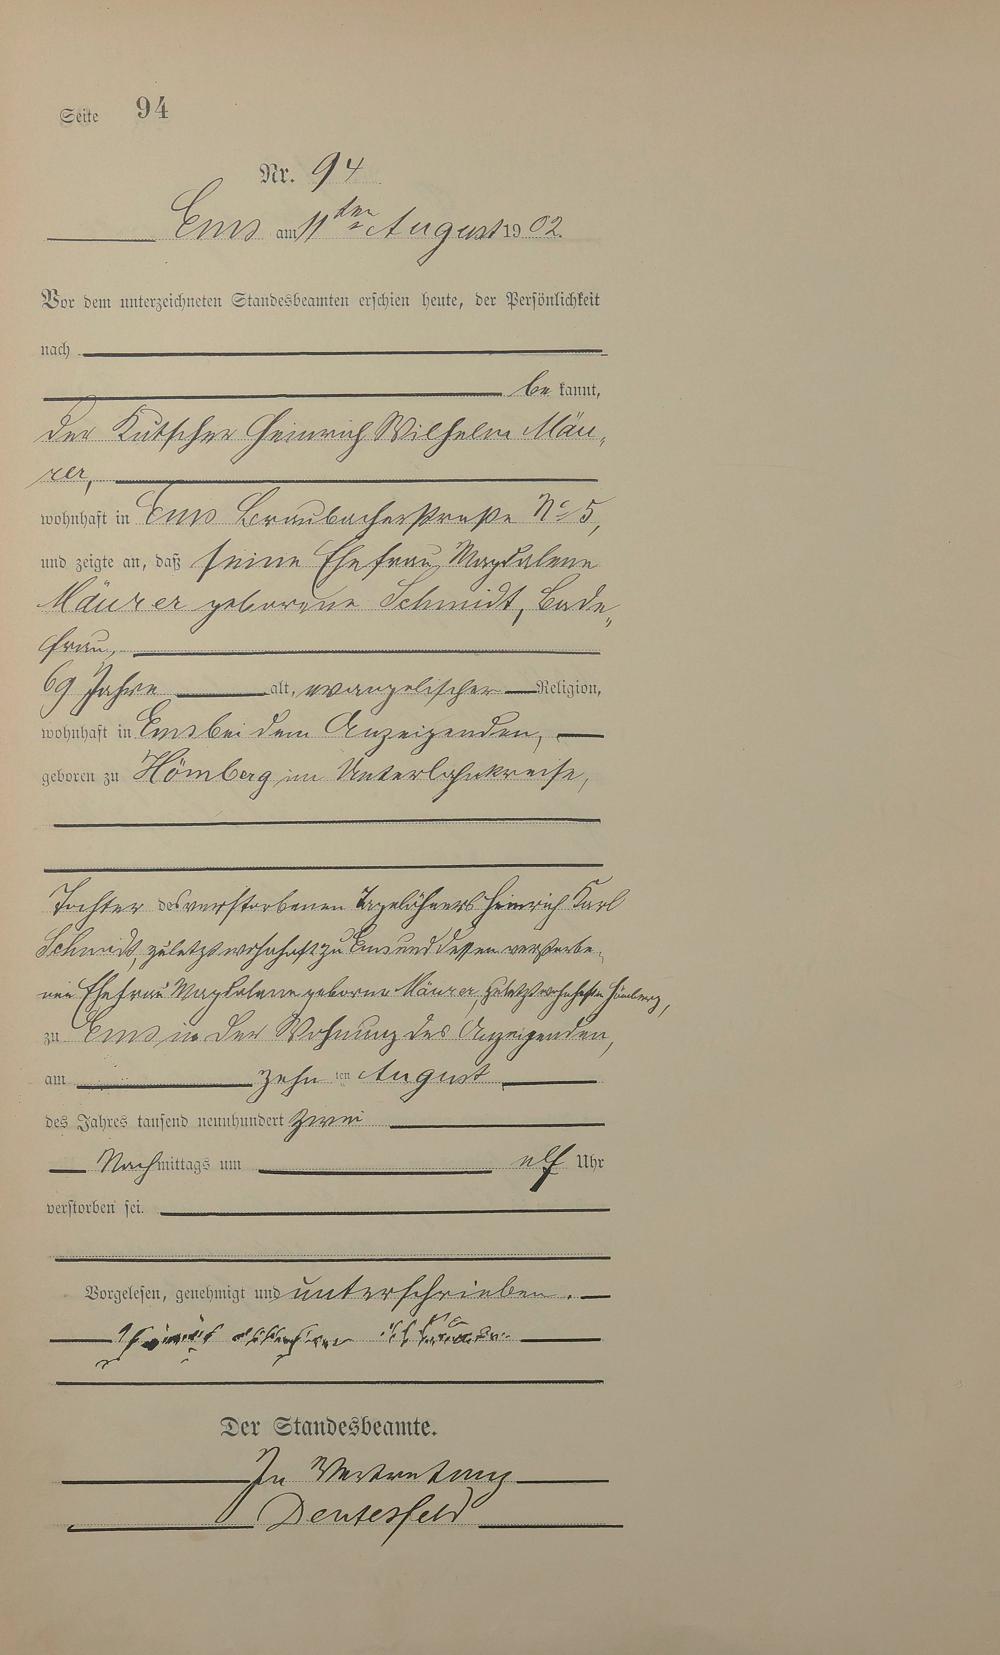 Seite 94
Nr. 94
Ems am 11ten August 1902.
Vor dem unterzeichneten Standesbeamten erschien heute, der Persönlichkeit
nach
be kannt,
der Kutscher Heinrich Wilhelm Mäu„
rer,
wohnhaft in Ems Braubacherstraße No 5,
und zeigte an, daß seine Ehefrau Magdalene
Mäurer geborene Schmidt, Bade„
frau,
69 Jahre alt, evangelischer Religion,
wohnhaft in Ems bei dem Anzeigenden,
geboren zu Hömberg im Unterlahnkreise,
Tochter des verstorbenen Tagelöhners Heinrich Karl
Schmidt, zuletzt wohnhaft zu Ems und dessen verstorbe„
nen Ehefrau Magdalene geborne Mäurer, zuletzt wohnhaft zu Hömberg,
zu Ems in der Wohnung des Anzeigenden,
am zehn ten August
des Jahres tausend neunhundert zwei
Nachmittags um elf Uhr
verstorben sei.
Vorgelesen, genehmigt und unterschrieben.
Der Standesbeamte.
In Vertretung